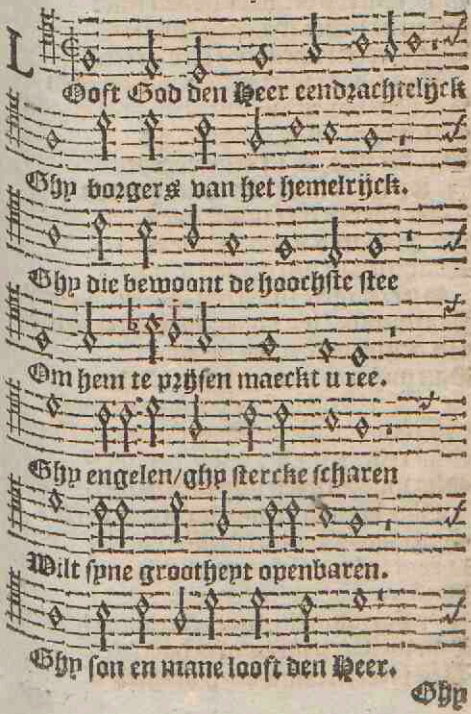 LOoft God den Heer eendrachtelijck
Ghy borgers van het hemelrijck.
Ghy die bewoont de hoochste stee
Om hem te prijsen maeckt u ree.
Ghy engelen/ghy stercke scharen
Wilt syne grootheyt openbaren.
Ghy son en mane looft den Heer.
Ghy